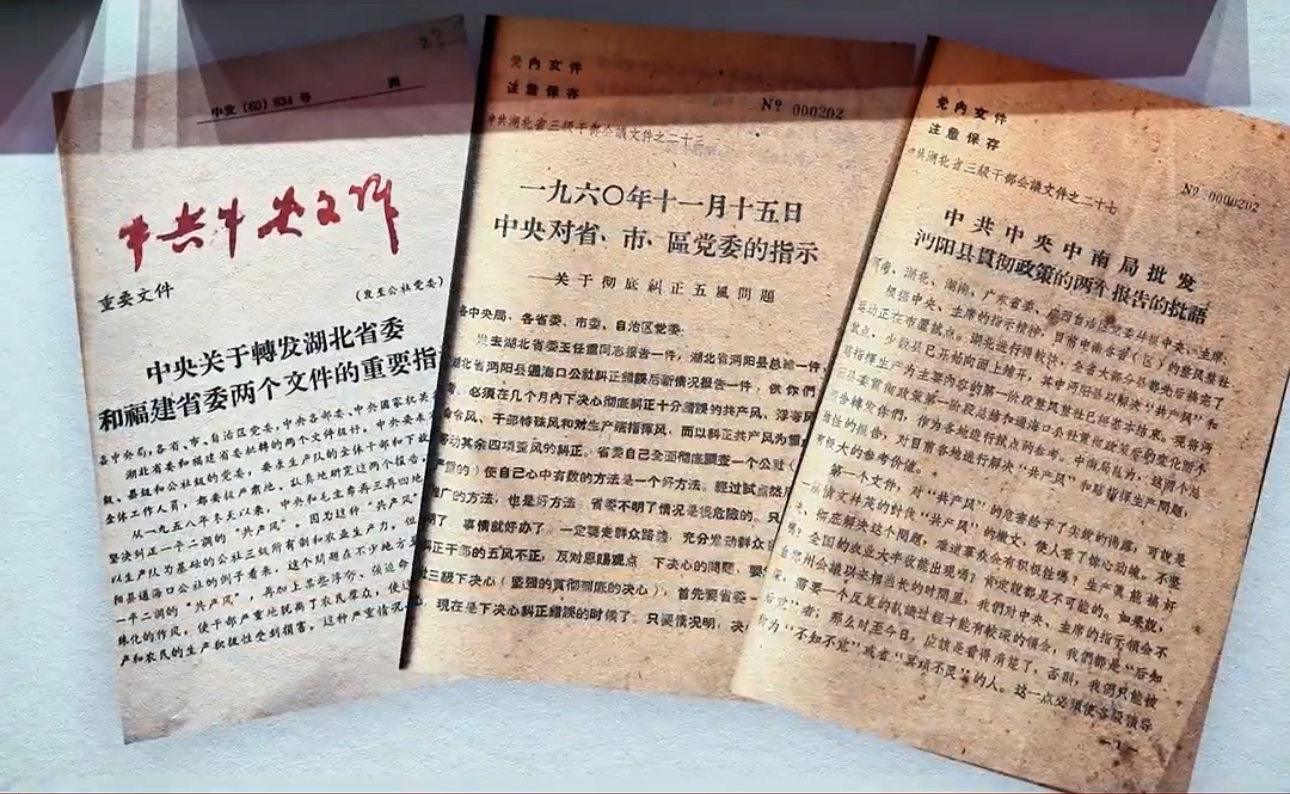 中发（60）834 号
中共中央文件
重要文件
（发至公社党委）
中央关于轉发湖北省委
和福建省委两个文件的重要指
各中央局，各省、市、自治区党委，中央各部委、中央国家机关
湖北省委和福建省委批轉的两个文件极好。中央要求
級、县級和公社級的党委，要求生产队的全体干部和下放
全体工作人員，都要极严肃地、认真地研究这两个报告，
从一九五八年冬天以来，中央和毛主席再三再四地
堅决糾正一平二調的“共产风”。因为这种“共产风”
以生产队为基础的公社三級所有制和农业生产力。但
阳县通海口公社的例子看来，这个問題在不少地方
一平二調的“共产风”，再加上某些浮夸、强迫命
殊化的作风，使干部严重地脱离了农民群众，使
产和农民的生产积极性受到損害，这种严重情况
党内文件
注意保存
№ 000202
中共湖北省三級干部会議文件之二十
一九六〇年十一月十五日
中央对省、市、區党委的指示
——关于彻底糾正五風問題
各中央局，各省委、市委、自治区党委：
发去湖北省委王任重同志报告一件，湖北省沔阳县总結一件，
湖北省沔阳县通海口公社糾正錯誤后新情况报告一件，供你們
考。必須在几个月內下决心彻底糾正十分錯誤的共产风、浮夸风
命令风、干部特殊风和对生产瞎指挥风，而以糾正共产风为重
带动其余四项歪风的糾正。省委自己全面彻底調查一个公社（
严重的）使自己心中有数的方法是一个好方法。經过試点然
推广的方法，也是好方法。省委不明了情况是很危险的。只
明了，事情就好办了。一定要走群众路綫，充分发动群众
糾正干部的五风不正，反对恩賜观点。下决心的問題，要
社三級下决心（坚强的貫彻到底的决心），首先要省委一
，現在是下决心糾正錯誤的时候了。只要情况明，决
党内文件
注意保存
中共湖北省三級干部会議文件之二十七
№ 0000202
中共中央中南局批发
沔阳县貫彻政策的两个报告的批語
河南、湖北、湖南、广东省委、广西自治区党委幷报中央、主席：
根据中央、主席的指示精神，目前中南各省（区）的整风整社
运动正在布置試点。湖北进行得較快，全省大部分县都先后搞完了
試点，少数县已开始向面上鋪开，其中沔阳县以解决“共产风”和
瞎指挥生产为主要内容的第一阶段整风整社已經基本結束。現将沔
阳县委貫彻政策第一阶段总結和通海口公社貫彻政策后的变化两个
报告轉发你們，作为各地进行試点的参考。中南局认为，这两个总
結性的报告，对目前各地进行解决“共产风”和瞎指挥生产問題，
有极大的参考价值。
第一个文件，对“共产风”的危害給予了尖銳的揭露，可說是
一篇情文幷茂的討伐“共产风”的檄文，使人看了惊心动魄。不坚
决、彻底解决这个問題，难道羣众会有积极性嗎？生产真能搞好
嗎？全国的农业大丰收能出現嗎？肯定說都是不可能的。如果說，
自鄭州会議以来相当长的时間里，我們对中央、主席的指示領会不
深，需要一个反复的认識过程才能有較深的領会，我們都是“后知
后觉”者；那么时至今日，应該是看得清楚了，否則，我們只能被
称为“不知不觉”或者“冥頑不灵”的人。这一点必須使各級領导
—1—